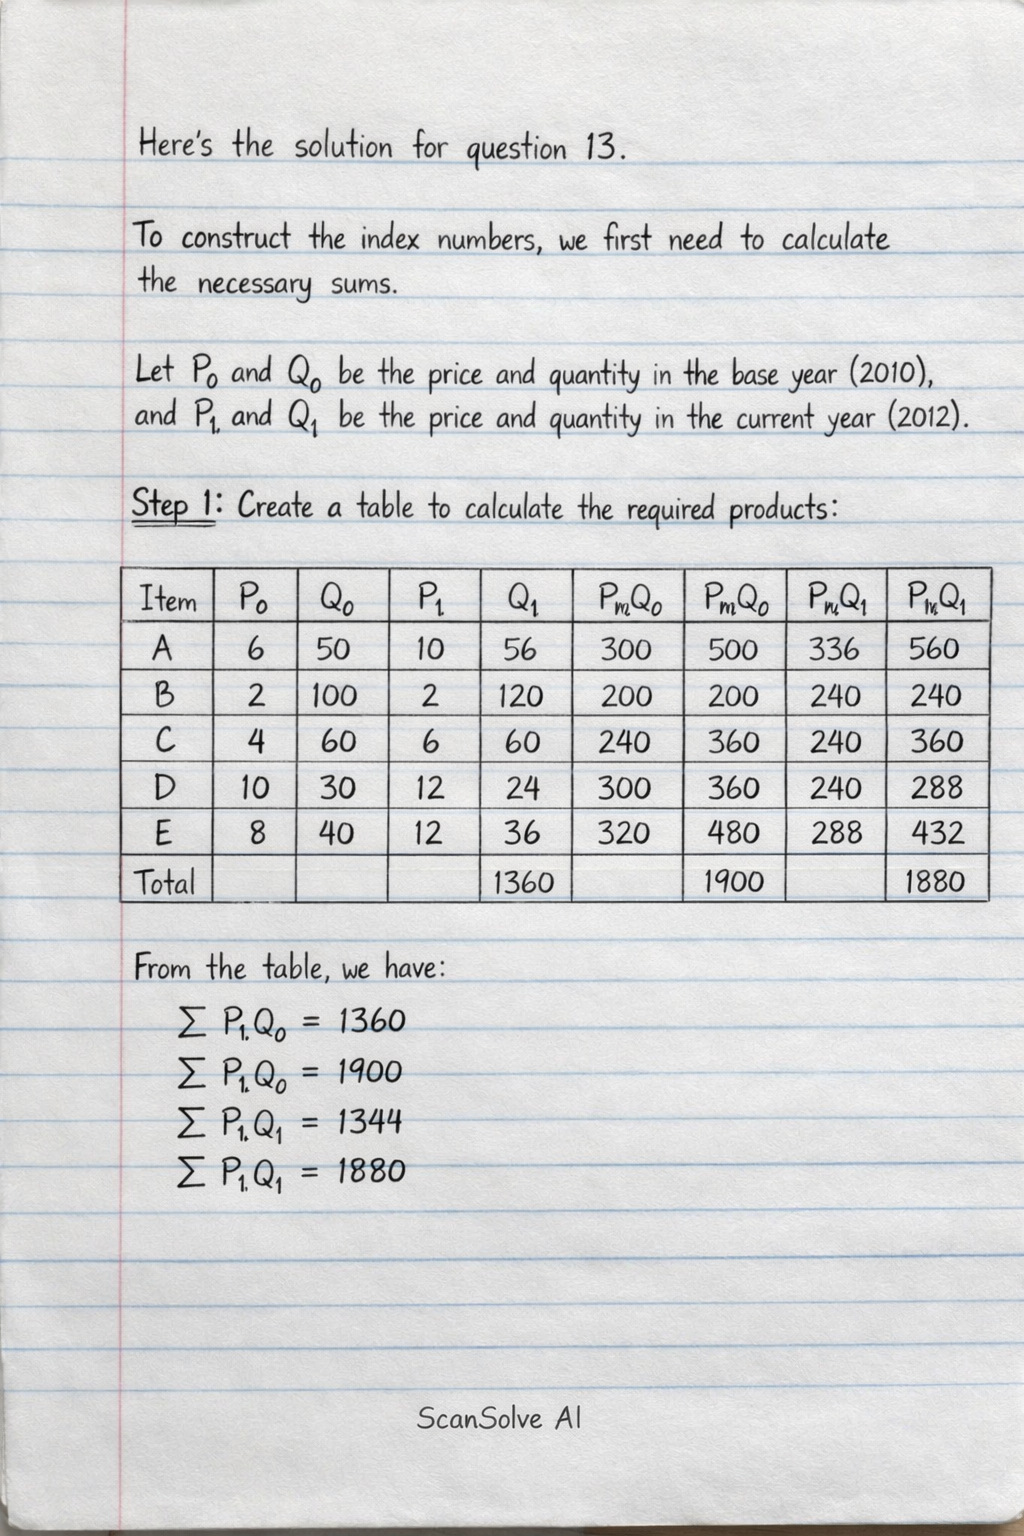 Here's the solution for question 13.
To construct the index numbers, we first need to calculate
the necessary sums.
Let P₀ and Q₀ be the price and quantity in the base year (2010),
and P₁ and Q₁ be the price and quantity in the current year (2012).
Step 1: Create a table to calculate the required products:
Item P₀ Q₀ P₁ Q₁ PₘQ₀ PₘQ₀ PₙQ₁ PₕQ₁
A 6 50 10 56 300 500 336 560
B 2 100 2 120 200 200 240 240
C 4 60 6 60 240 360 240 360
D 10 30 12 24 300 360 240 288
E 8 40 12 36 320 480 288 432
Total 1360 1900 1880
From the table, we have:
∑ P₁.Q₀ = 1360
∑ P₁.Q₀ = 1900
∑ P₁.Q₁ = 1344
∑ P₁.Q₁ = 1880
ScanSolve AI